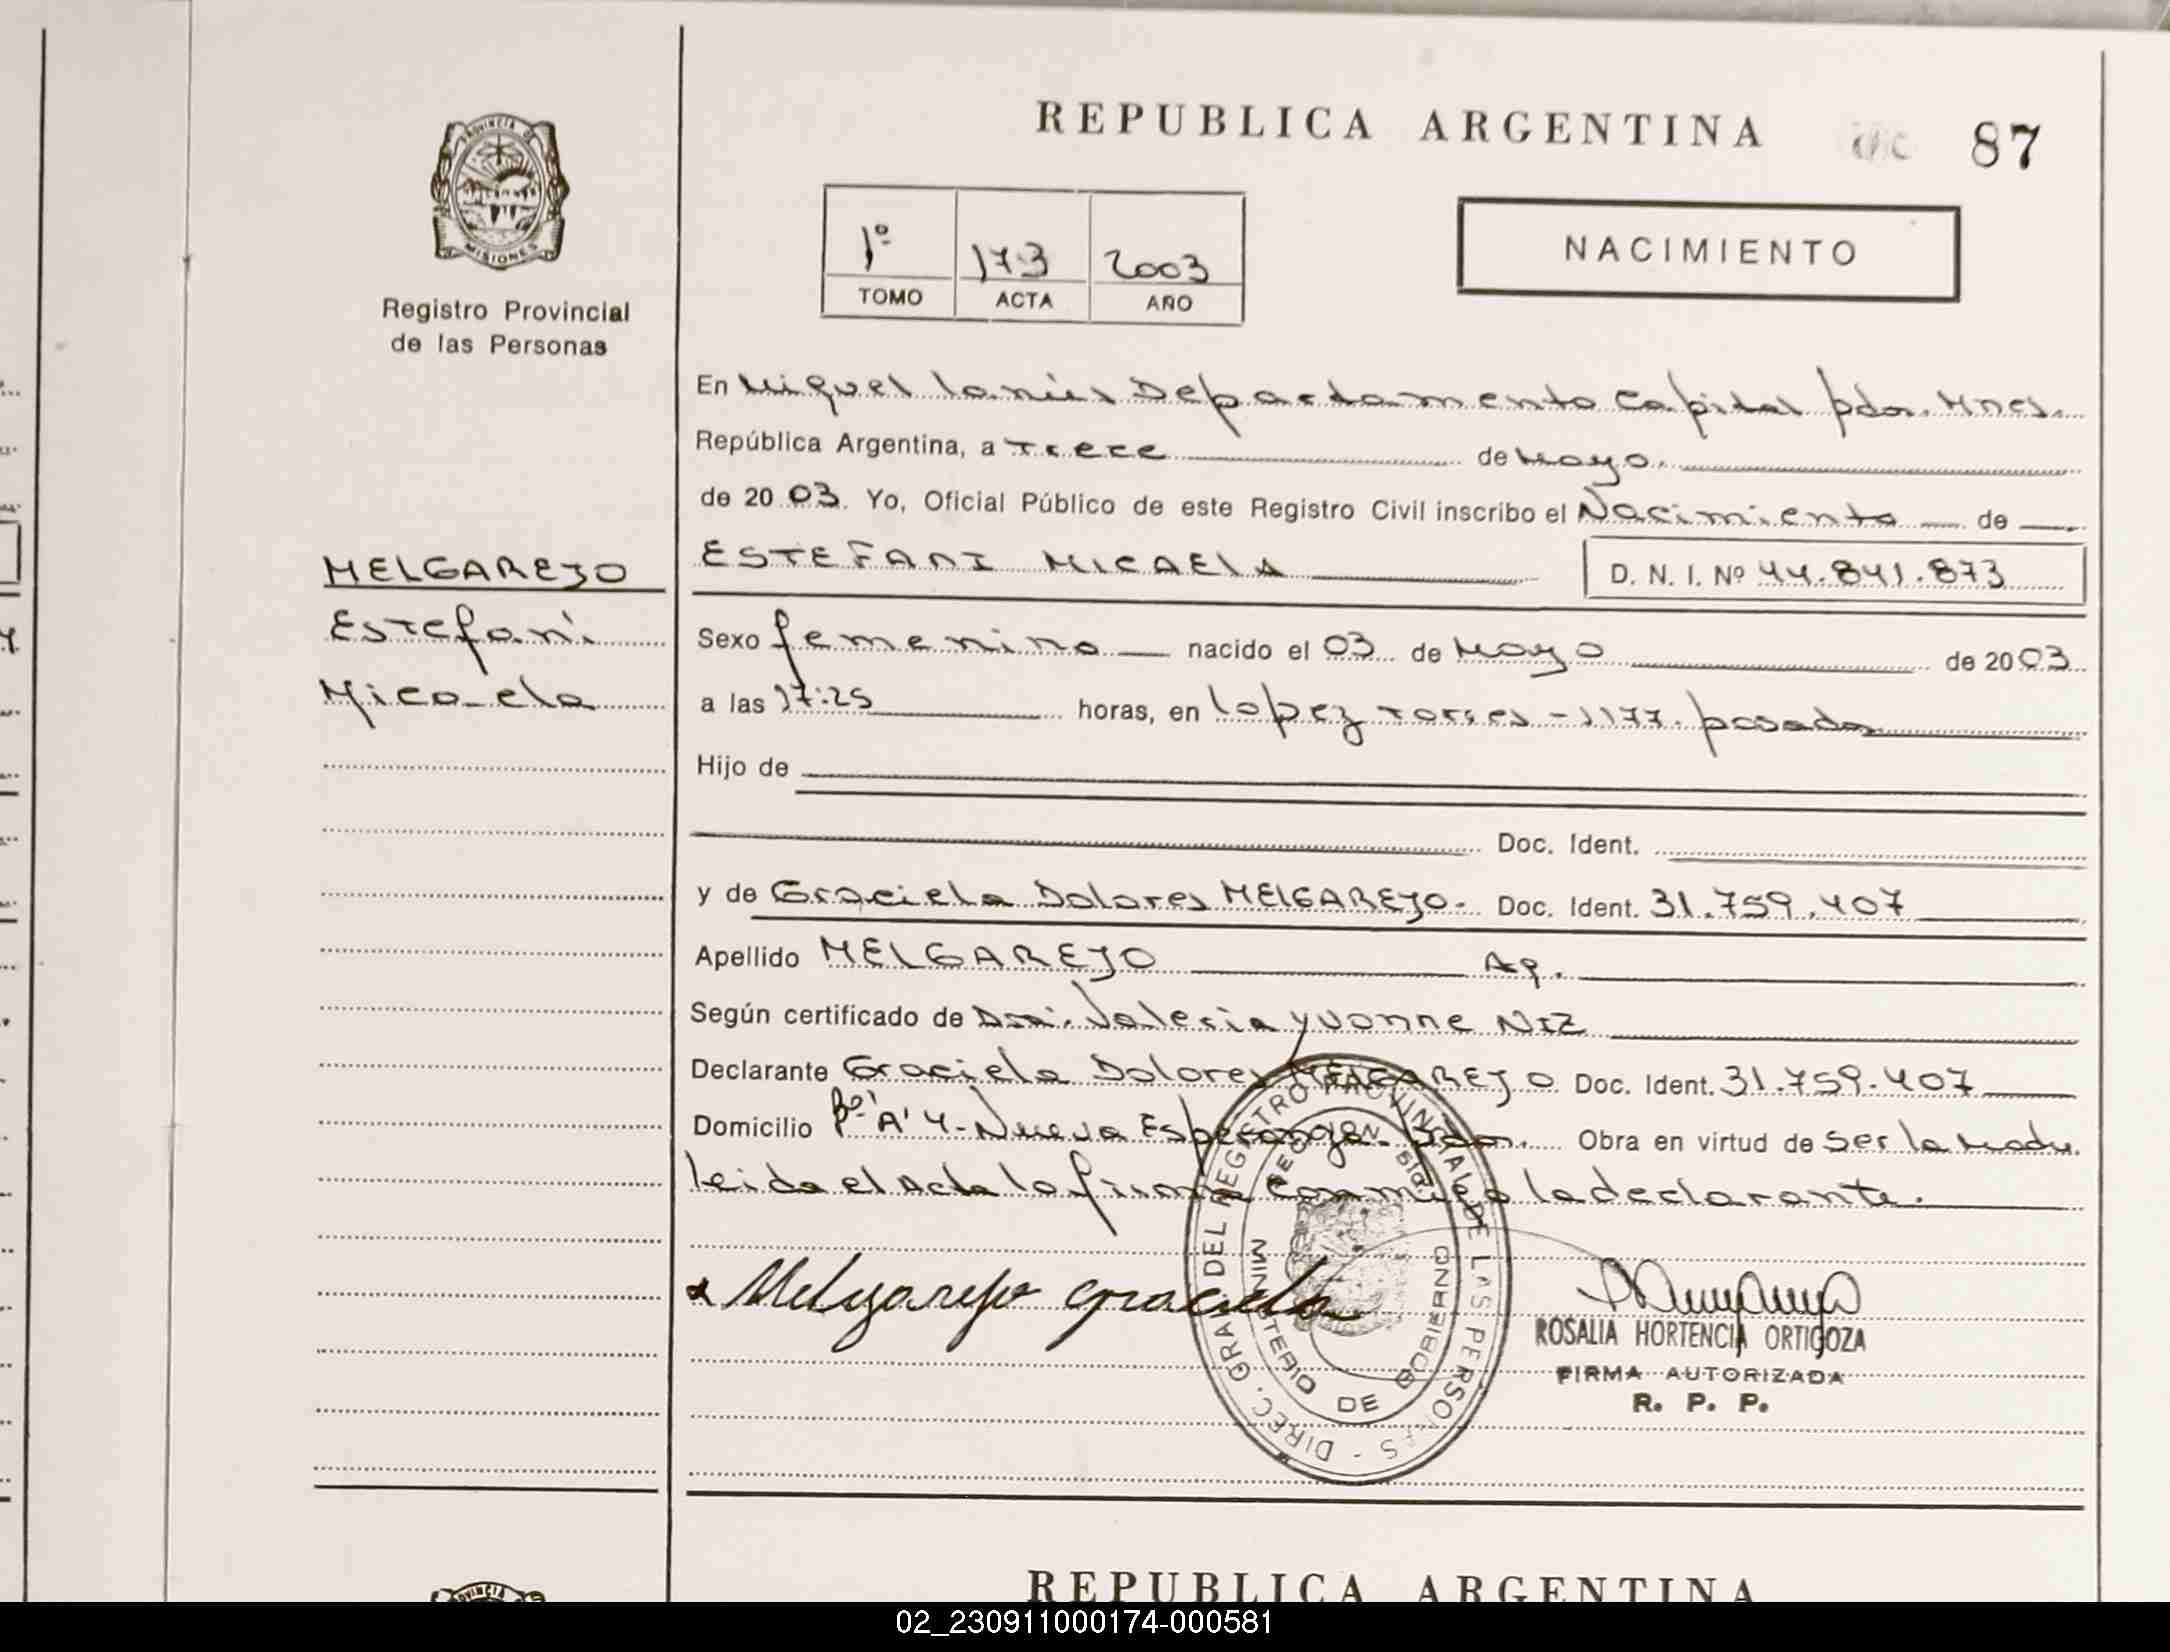 REPUBLICA ARGENTINA 87
PROVINCIA DE
MISIONES
Registro Provincial
de las Personas
1º 173 2003
TOMO ACTA AÑO
NACIMIENTO
En Miguel Lanús Departamento Capital pdas. Mnes.
República Argentina, a Trece de Mayo.
de 20 03. Yo, Oficial Público de este Registro Civil inscribo el Nacimiento de
ESTEFANI MICAELA D. N. I. Nº 44.841.873
MELGAREJO
Estefani
Micaela
Sexo femenino nacido el 03 de Mayo de 20 03
a las 17:25 horas, en Lopez Torres - 1177. posadas
Hijo de
Doc. Ident.
y de Graciela Dolores MELGAREJO.- Doc. Ident. 31.759.407
Apellido MELGAREJO
Según certificado de Dra. Valeria Yvonne NIZ
Declarante Graciela Dolores MELGAREJO Doc. Ident. 31.759.407
Domicilio Bº 'A' 4 - Nueva Esperanza. Pdas. Obra en virtud de Ser la Madre.
Leida el Acta la firma conmigo la declarante.
DIREC. GRAL. DEL REGISTRO PROVINCIAL DE LAS PERSONAS
MINISTERIO DE GOBIERNO
Melgarejo Graciela
ROSALIA HORTENCIA ORTIGOZA
FIRMA AUTORIZADA
R. P. P.
REPUBLICA ARGENTINA
02_230911000174-000581